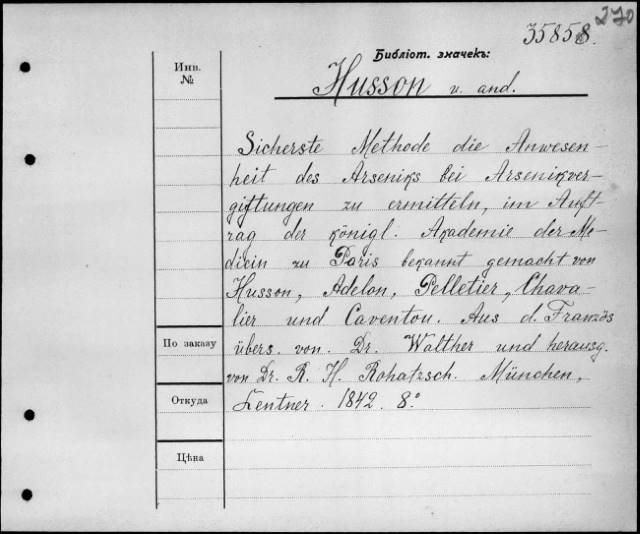 270
35858.
Библіот. значекъ:
Инв.
№
Husson u. and.
Sicherste Methode die Anwesen-
heit des Arseniks bei Arsenikver-
giftungen zu ermitteln, im Auft-
rag der königl. Akademie der Me-
dicin zu Paris bekannt gemacht von
Husson, Adelon, Pelletier, Chava-
lier und Caventou. Aus d. Französ
übers. von. Dr. Walther und herausg.
von Dr. R. H. Rohatzsch. München,
Lentner. 1842. 8°
По заказу
Откуда
Цѣна